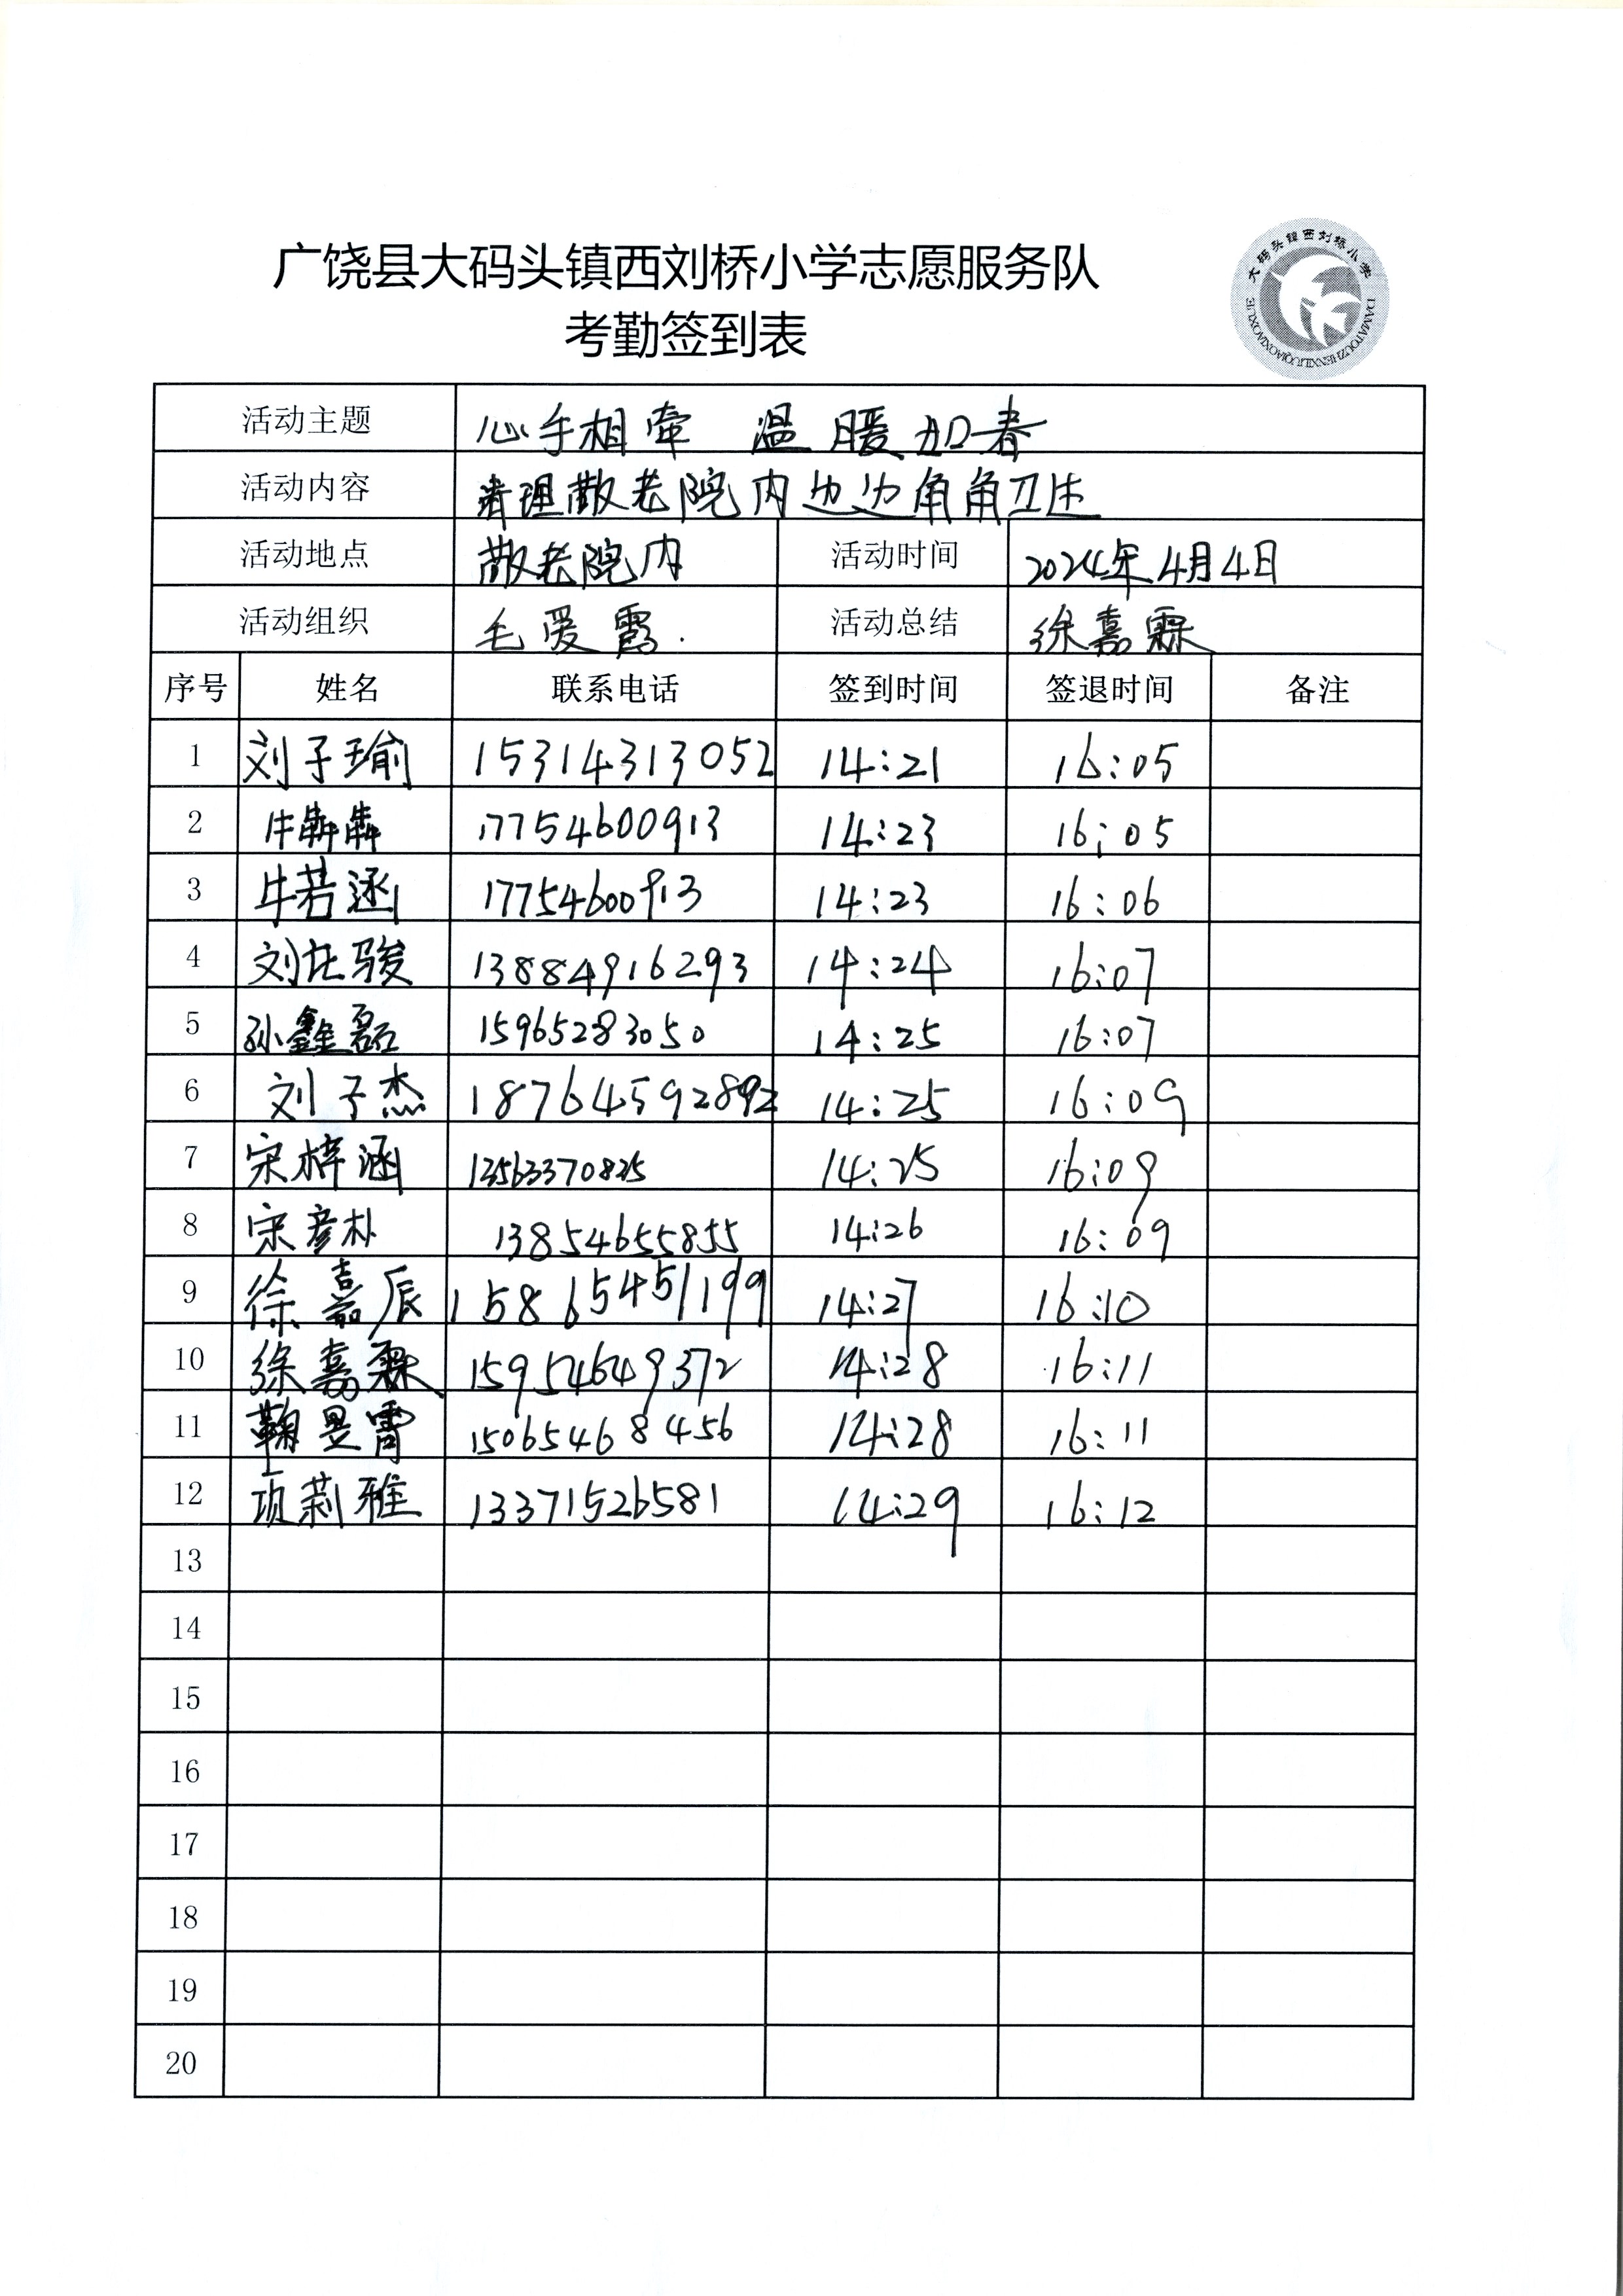 广饶县大码头镇西刘桥小学志愿服务队
考勤签到表
大码头镇西刘桥小学
DAMATOUZHENXILIUQIAOXIAOXUE
活动主题 心手相牵 温暖如春
活动内容 清理敬老院内边边角角卫生
活动地点 敬老院内 活动时间 2024年4月4日
活动组织 毛爱霞 活动总结 徐嘉霖
序号 姓名 联系电话 签到时间 签退时间 备注
1 刘子瑜 15314313052 14:21 16:05
2 牛犇犇 17754600913 14:23 16:05
3 牛若涵 17754600913 14:23 16:06
4 刘在骏 13884916293 14:24 16:07
5 孙鑫磊 15965283050 14:25 16:07
6 刘子杰 18764592892 14:25 16:09
7 宋梓涵 14:25 16:09
8 宋彦朴 13854655855 14:26 16:09
9 徐嘉辰 15865451199 14:27 16:10
10 徐嘉霖 15954649372 14:28 16:11
11 鞠昱霄 15065468456 14:28 16:11
12 项莉雅 13371526581 14:29 16:12
13
14
15
16
17
18
19
20